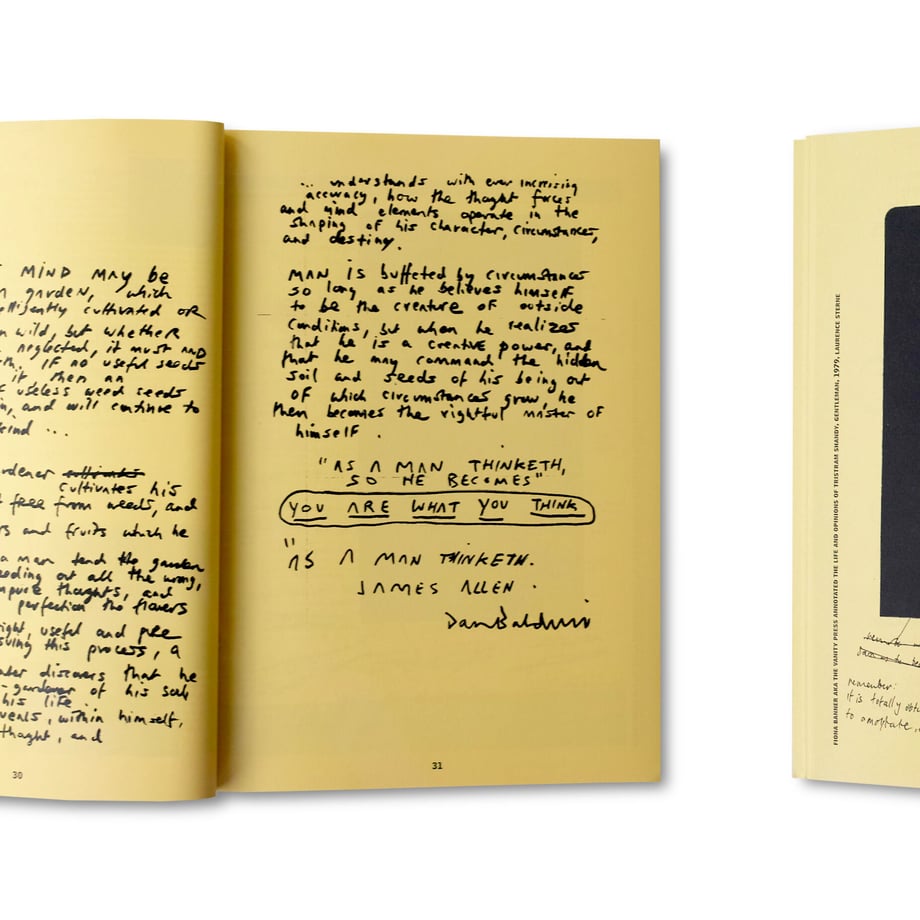 MIND MAY be
garden, which
cultivated OR
wild, but whether
neglected, it must AND
IF no useful seeds
it then an
useless weed seeds
and will continue to
kind ...
cultivates his
free from weeds, and
and fruits which he
a man tend the garden
out all the wrong,
thoughts, and
perfection the flowers
useful and
this process, a
discovers that he
gardener of his soul
his life ..
within himself,
thought, and
30
... understands with ever increasing
accuracy, how the thought forces
and mind elements operate in the
shaping of his character, circumstances,
and destiny.
MAN is buffeted by circumstances
so long as he believes himself
to be the creature of outside
conditions, but when he realizes
that he is a creative power, and
that he may command the hidden
soil and seeds of his being out
of which circumstances grow, he
then becomes the rightful master of
himself .
"AS A MAN THINKETH,
SO HE BECOMES"
YOU ARE WHAT YOU THINK
"AS A MAN THINKETH.
JAMES ALLEN .
Dan Baldwin
31
FIONA BANNER AKA THE VANITY PRESS ANNOTATED THE LIFE AND OPINIONS OF TRISTRAM SHANDY, GENTLEMAN, 1979, LAURENCE STERNE
remember:
it is totally
to